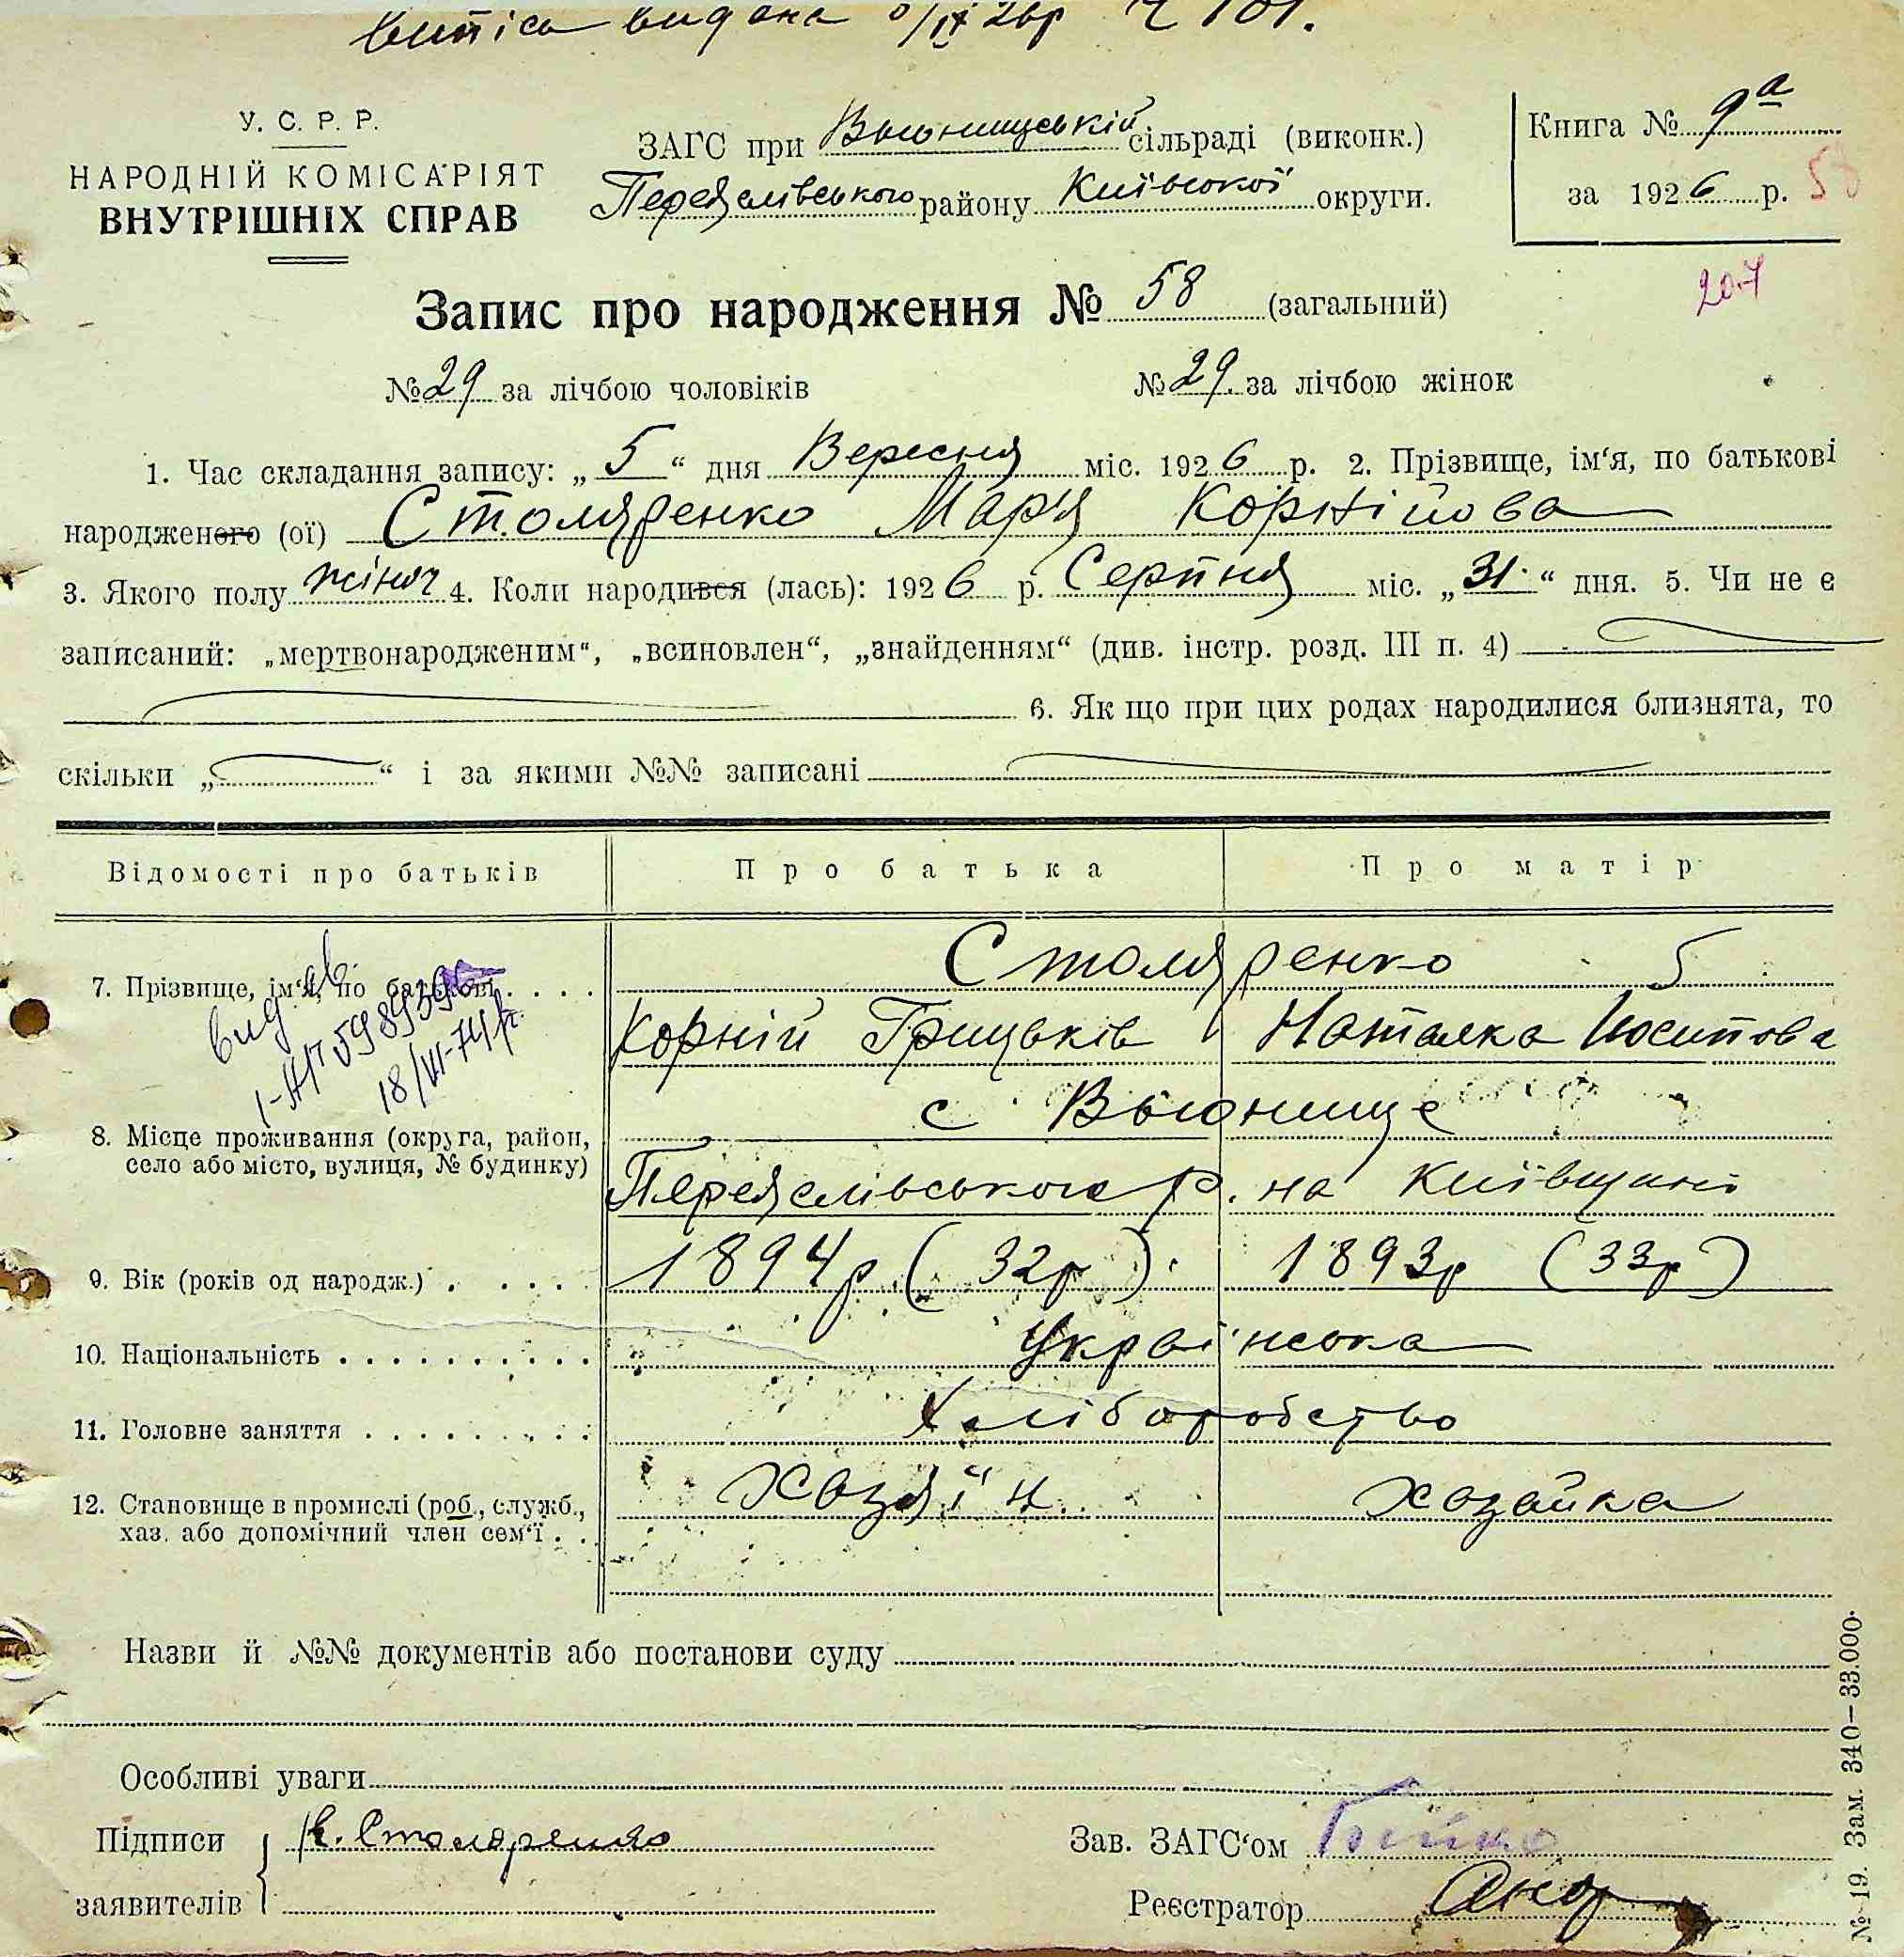 випіс видана /ІХ 26р Ч 101.
У. С. Р. Р.
НАРОДНІЙ КОМІСАРІЯТ
ВНУТРІШНІХ СПРАВ
ЗАГС при Вьюнищській сільраді (виконк.)
Переяслівського району Київської округи.
Книга № 9а
за 1926 р. 58
207
Запис про народження № 58 (загальний)
№ 29 за лічбою чоловіків № 29. за лічбою жінок
1. Час складання запису: „ 5 “ дня Вересня міс. 1926 р. 2. Прізвище, ім‘я, по батькові
народженого (ої) Столяренко Мар'я Корнійова
3. Якого полу жіноч 4. Коли народився (лась): 1926 р. Серпня міс. „31.“ дня. 5. Чи не є
записаний: „мертвонародженим“, „всиновлен“, „знайденням“ (див. інстр. розд. III п. 4)
6. Як що при цих родах народилися близнята, то
скільки „ “ і за якими №№ записані
Відомості про батьків Про батька Про матір
7. Прізвище, ім‘я, по батькові . . . . Столяренко 5
Корній Грицьків Наталка Йосипова
вид. св.
18/VI-74р.
8. Місце проживання (округа, район,
село або місто, вулиця, № будинку)
с Вьюнище
Переяслівського р. на Київщині
9. Вік (років од народж.) . . . . . 1894р (32р). 1893р (33р)
10. Національність . . . . . . . . . . Українська
11. Головне заняття . . . . . . . . . Хліборобство
12. Становище в промислі (роб., служб.,
хаз. або допомічний член сем‘ї . .
хозяїн хозайка
Назви й №№ документів або постанови суду
Особливі уваги
Підписи
заявителів
К. Столяренко
Зав. ЗАГС‘ом Бойко
Реєстратор
№ 19. Зам. 340—33.000.